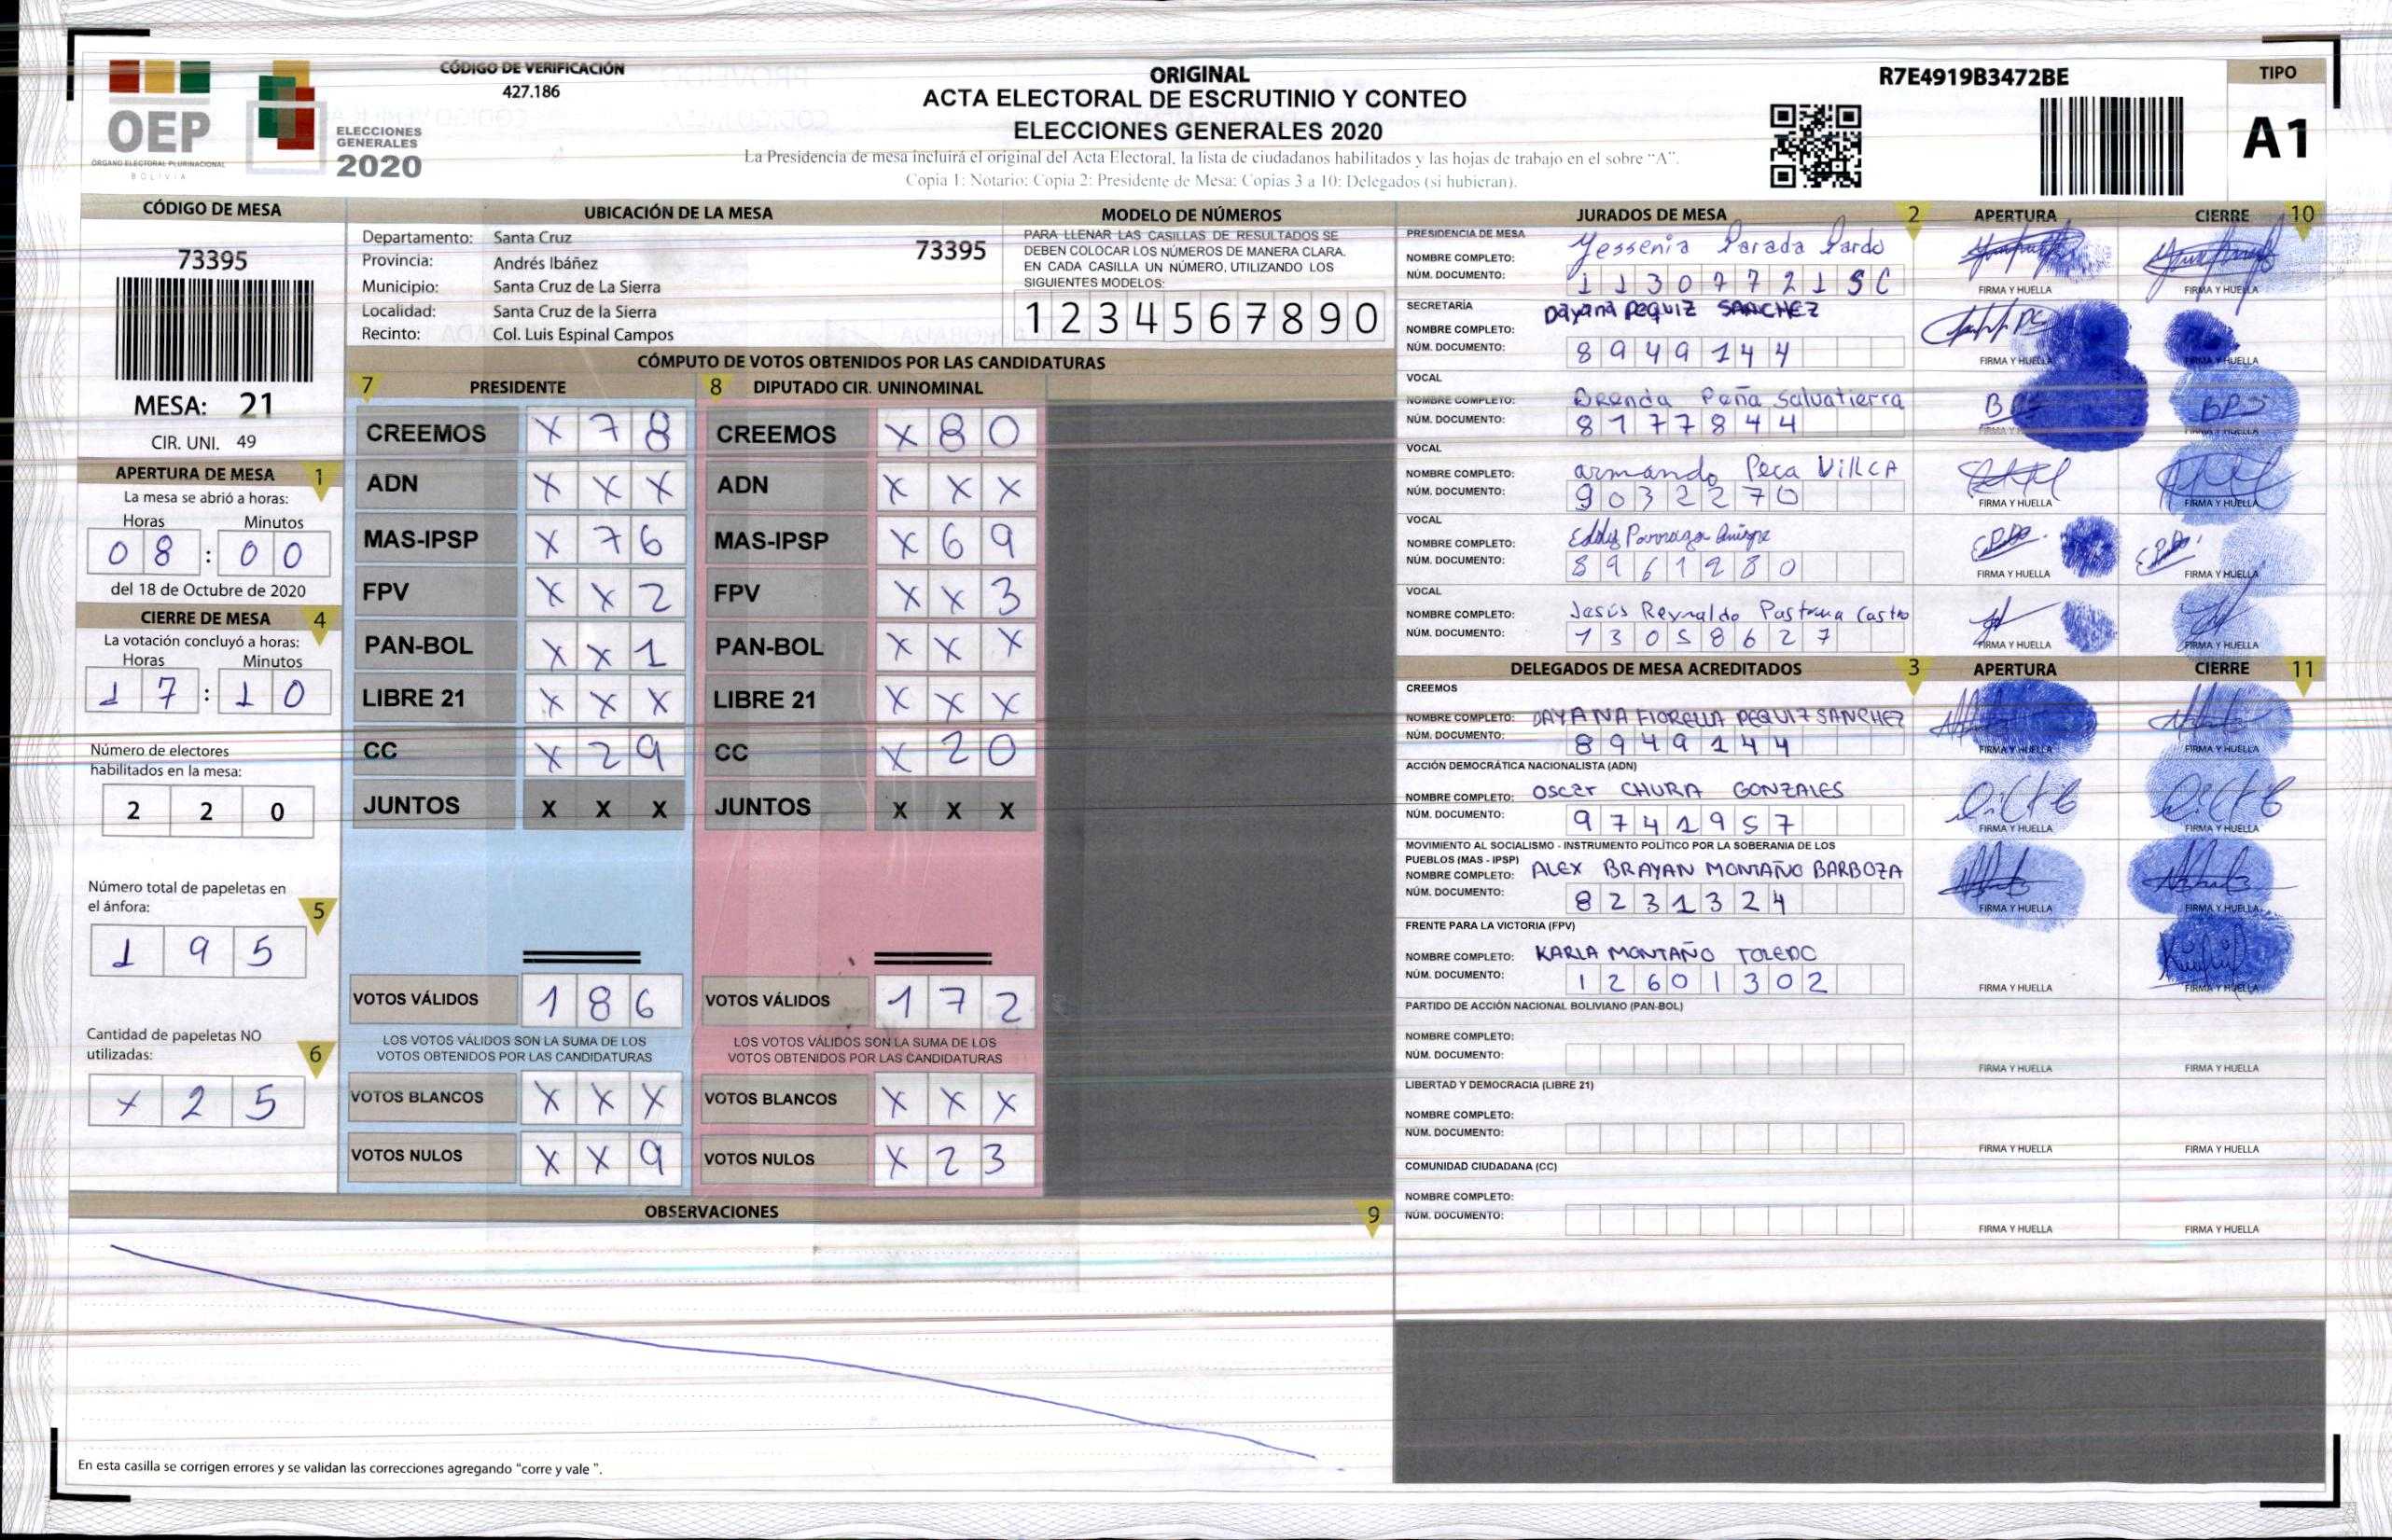 CÓDIGO DE VERIFICACIÓN
427.186
OEP
ÓRGANO ELECTORAL PLURINACIONAL
BOLIVIA
ELECCIONES
GENERALES
2020
ORIGINAL
ACTA ELECTORAL DE ESCRUTINIO Y CONTEO
ELECCIONES GENERALES 2020
La Presidencia de mesa incluirá el original del Acta Electoral, la lista de ciudadanos habilitados y las hojas de trabajo en el sobre "A".
Copia 1: Notario; Copia 2: Presidente de Mesa; Copias 3 a 10: Delegados (si hubieran).
R7E4919B3472BE
TIPO
A1
CÓDIGO DE MESA
73395
MESA: 21
CIR. UNI. 49
APERTURA DE MESA 1
La mesa se abrió a horas:
Horas Minutos
08 : 00
del 18 de Octubre de 2020
CIERRE DE MESA 4
La votación concluyó a horas:
Horas Minutos
17 : 10
Número de electores
habilitados en la mesa:
2 2 0
Número total de papeletas en
el ánfora: 5
1 9 5
Cantidad de papeletas NO
utilizadas: 6
X 2 5
UBICACIÓN DE LA MESA
Departamento: Santa Cruz 73395
Provincia: Andrés Ibáñez
Municipio: Santa Cruz de La Sierra
Localidad: Santa Cruz de la Sierra
Recinto: Col. Luis Espinal Campos
MODELO DE NÚMEROS
PARA LLENAR LAS CASILLAS DE RESULTADOS SE
DEBEN COLOCAR LOS NÚMEROS DE MANERA CLARA.
EN CADA CASILLA UN NÚMERO, UTILIZANDO LOS
SIGUIENTES MODELOS:
1 2 3 4 5 6 7 8 9 0
CÓMPUTO DE VOTOS OBTENIDOS POR LAS CANDIDATURAS
7 PRESIDENTE 8 DIPUTADO CIR. UNINOMINAL
CREEMOS X 7 8 CREEMOS X 8 0
ADN X X X ADN X X X
MAS-IPSP X 7 6 MAS-IPSP X 6 9
FPV X X 2 FPV X X 3
PAN-BOL X X 1 PAN-BOL X X X
LIBRE 21 X X X LIBRE 21 X X X
CC X 2 9 CC X 2 0
JUNTOS X X X JUNTOS X X X
VOTOS VÁLIDOS 1 8 6 VOTOS VÁLIDOS 1 7 2
LOS VOTOS VÁLIDOS SON LA SUMA DE LOS LOS VOTOS VÁLIDOS SON LA SUMA DE LOS
VOTOS OBTENIDOS POR LAS CANDIDATURAS VOTOS OBTENIDOS POR LAS CANDIDATURAS
VOTOS BLANCOS X X X VOTOS BLANCOS X X X
VOTOS NULOS X X 9 VOTOS NULOS X 2 3
OBSERVACIONES 9
En esta casilla se corrigen errores y se validan las correcciones agregando "corre y vale ".
JURADOS DE MESA 2 APERTURA CIERRE 10
PRESIDENCIA DE MESA
NOMBRE COMPLETO: Yessenia Parada Pardo
NÚM. DOCUMENTO: 11307721SC
FIRMA Y HUELLA FIRMA Y HUELLA
SECRETARÍA
NOMBRE COMPLETO: Dayana PEQUIZ SANCHEZ
NÚM. DOCUMENTO: 8949144
FIRMA Y HUELLA FIRMA Y HUELLA
VOCAL
NOMBRE COMPLETO: Brenda Peña Salvatierra
NÚM. DOCUMENTO: 8177844
BPS
VOCAL
NOMBRE COMPLETO: armando Peca VillCA
NÚM. DOCUMENTO: 9032270
FIRMA Y HUELLA FIRMA Y HUELLA
VOCAL
NOMBRE COMPLETO: Eddy
NÚM. DOCUMENTO: 8961280
FIRMA Y HUELLA FIRMA Y HUELLA
VOCAL
NOMBRE COMPLETO: Jesús Reynaldo Pastrana Castro
NÚM. DOCUMENTO: 13058627
FIRMA Y HUELLA FIRMA Y HUELLA
DELEGADOS DE MESA ACREDITADOS 3 APERTURA CIERRE 11
CREEMOS
NOMBRE COMPLETO: DAYANA FIORELLA PEQUIZ SANCHEZ
NÚM. DOCUMENTO: 8949144
FIRMA Y HUELLA FIRMA Y HUELLA
ACCIÓN DEMOCRÁTICA NACIONALISTA (ADN)
NOMBRE COMPLETO: OSCAr CHURA GONZALES
NÚM. DOCUMENTO: 9741957
FIRMA Y HUELLA FIRMA Y HUELLA
MOVIMIENTO AL SOCIALISMO - INSTRUMENTO POLÍTICO POR LA SOBERANIA DE LOS
PUEBLOS (MAS - IPSP)
NOMBRE COMPLETO: ALEX BRAYAN MONTAÑO BARBOZA
NÚM. DOCUMENTO: 8231324
FIRMA Y HUELLA FIRMA Y HUELLA
FRENTE PARA LA VICTORIA (FPV)
NOMBRE COMPLETO: KARLA MONTAÑO TOLEDO
NÚM. DOCUMENTO: 12601302
FIRMA Y HUELLA FIRMA Y HUELLA
PARTIDO DE ACCIÓN NACIONAL BOLIVIANO (PAN-BOL)
NOMBRE COMPLETO:
NÚM. DOCUMENTO:
FIRMA Y HUELLA FIRMA Y HUELLA
LIBERTAD Y DEMOCRACIA (LIBRE 21)
NOMBRE COMPLETO:
NÚM. DOCUMENTO:
FIRMA Y HUELLA FIRMA Y HUELLA
COMUNIDAD CIUDADANA (CC)
NOMBRE COMPLETO:
NÚM. DOCUMENTO:
FIRMA Y HUELLA FIRMA Y HUELLA